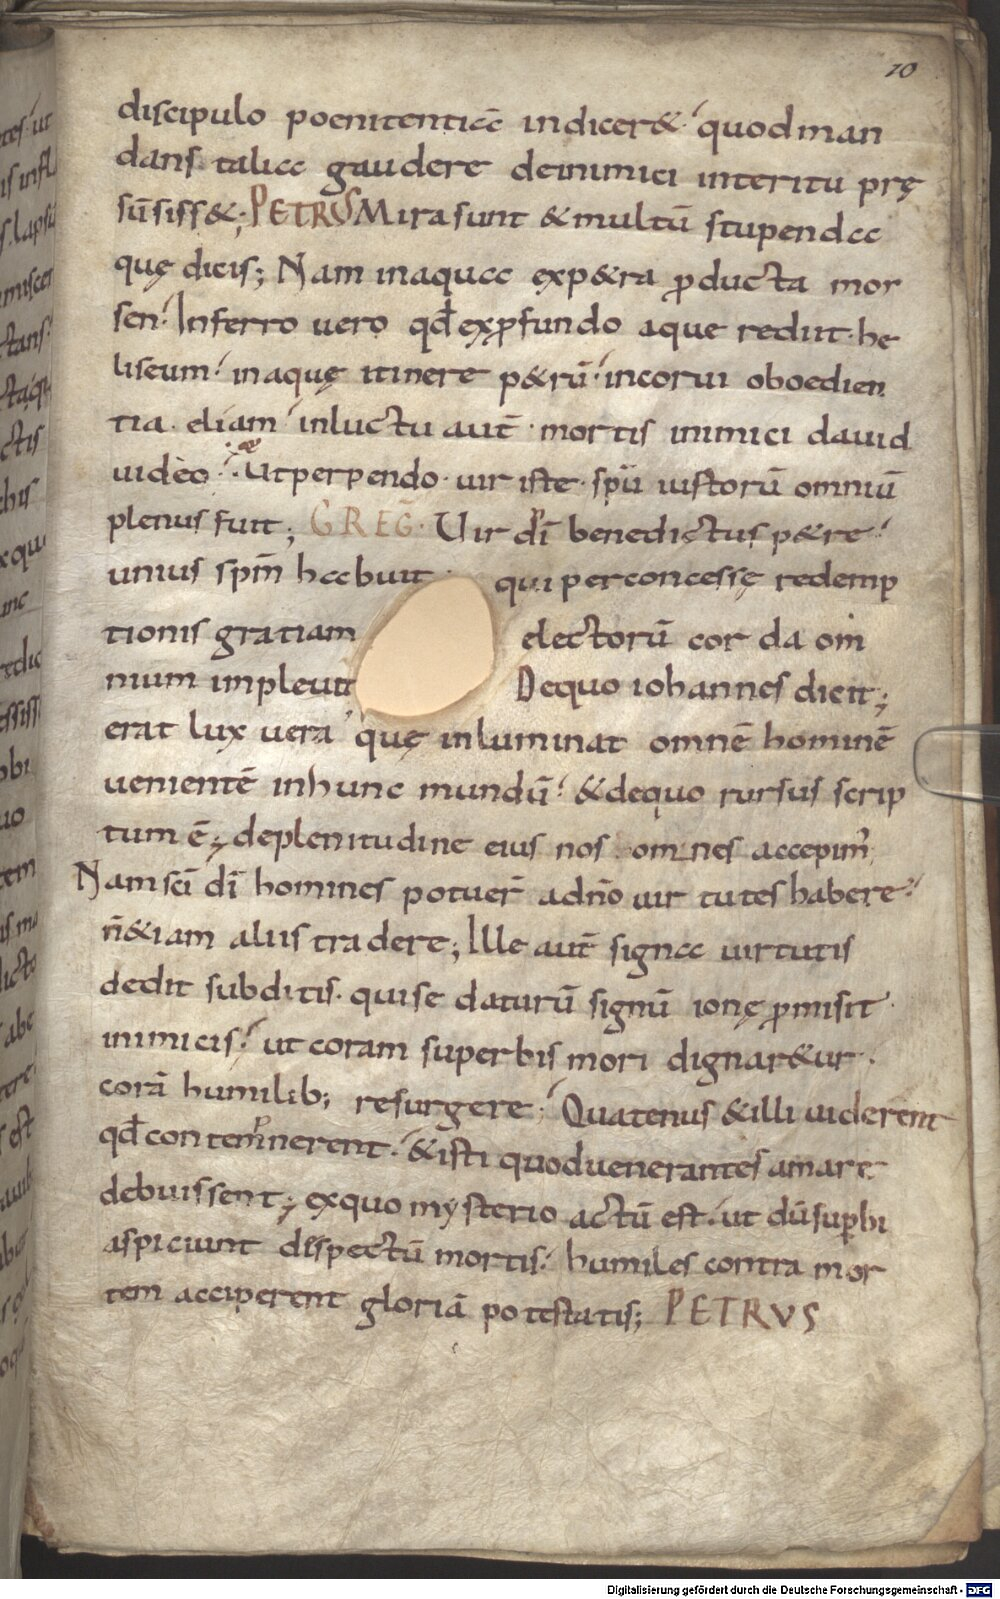 10
discipulo poenitentia indicer&· quod man
dans talia gaudere deinimici interitu pręsūsiss&; PETRUS Mira sunt & multū stupenda
quę dicis; Nam inaqua exp&ra ꝓducta mor
sen· Inferro uero qđ exꝓfundo aque rediit· he
liseum· inaquę itinere p&rū· incorui oboedien
tia· eliam inluctu aut̄· mortis inimici dauid
uideo· Ut perpendo· uir iste· spū iustorū omniū
plenus fuit; GREḠ· Uir dī benedictus p&re
unius spm̄ habuit qui perconcessę redemp
tionis gratiam electorū cor da om
nium impleuit Dequo iohannes dicit;
erat lux uera quę inluminat omnē hominē
uenientē inhunc mundū· & dequo rursus scrip
tum ē; deplenitudine eius nos omnes accepim᾽
Nam sc̄i dī homines potuer̄ adn̄o uir tutes habere·
n̄ &iam aliis tradere; Ille aut̄ signa uirtutis
dedit subditis· quise daturū signū ionę ꝓmisit
inimicis· ut coram superbis mori dignar&ur·
corā humilib; resurgere· Quatenus & illi uiderent
qđ contemnerent· & isti quod uenerantes amare
debuissent; exquo mysterio actū est· ut dū supbi
aspiciunt despectū mortis· humiles contra mor
tem acciperent gloriā potestatis; PETRVS
Digitalisierung gefördert durch die Deutsche Forschungsgemeinschaft - DFG